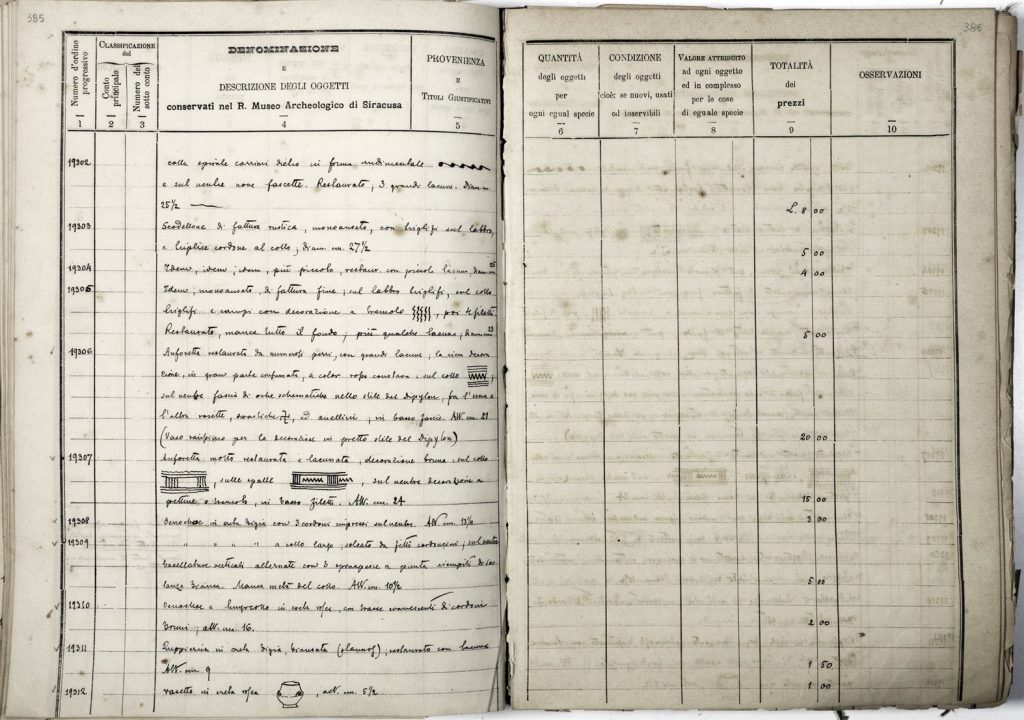 385
Numero d'ordine progressivo
CLASSIFICAZIONE del
Conto principale
Numero del sotto conto
DENOMINAZIONE
E
DESCRIZIONE DEGLI OGGETTI
conservati nel R. Museo Archeologico di Siracusa
PROVENIENZA
E
TITOLI GIUSTIFICATIVI
1 2 3 4 5
19302 colla spirale corrimi dietro in forma rudimentale
e sul ventre zone fascette. Restaurato, 3 grandi lacune. Diam. m.
25½
19303 Scodellone di fattura rustica, monoansato, con triglifi sul labbro,
e triplice cordone al collo; diam. cm. 27½
19304 Idem, idem, idem, più piccolo, restaur. con piccole lacune, diam. cm. 25
19305 Idem, monoansato, di fattura fine; sul labbro triglifi, sul collo
triglifi e campi con decorazione a tremolo , poi filetti
Restaurato, manca tutto il fondo, più qualche lacuna; diam. cm. 23
19306 Anforetta restaurata da numerosi pezzi, con grandi lacune; la ricca decora
zione, in gran parte consumata, a color rosso : sul collo ;
sul ventre fascia di oche schematiche nello stile del Dipylon, fra l'una e
l'altra rosette, svastiche 卍, ed anellini; in basso fascie. Alt. cm. 21
(Vaso rarissimo per la decorazione in pretto stile del Dipylon)
19307 Anforetta molto restaurata e lacunata, decorazione bruna; sul collo
, sulle spalle , sul ventre decorazione a
pettine e tremolo, in basso filetti. Alt. cm. 24
19308 Oenochoe in creta bigia con 3 cordoni impressi sul ventre. Alt. cm. 13½
19309 " " " " a collo largo, solcato da fitti cordoncini; sul ventre
baccellature verticali alternate con 3 a punta riempiti di so
stanza bianca. Manca metà del collo. Alt. cm. 10½
19310 Oenochoe a lungo collo in creta rosea, con tracce evanescenti di cordoni
bruni; alt. cm. 16.
19311 Zuppierina in creta bigia, biansata ; restaurata con lacuna
Alt. cm. 9
19312 Vasetto in creta rosea , alt. cm. 5½
386
QUANTITÀ
degli oggetti
per
ogni egual specie
CONDIZIONE
degli oggetti
cioè: se nuovi, usati
od inservibili
VALORE ATTRIBUITO
ad ogni oggetto
ed in complesso
per le cose
di eguale specie
TOTALITÀ
dei
prezzi
OSSERVAZIONI
6 7 8 9 10
L. 8 00
5 00
4 00
5 00
20 00
15 00
3 00
5 00
2 00
1 50
1 00